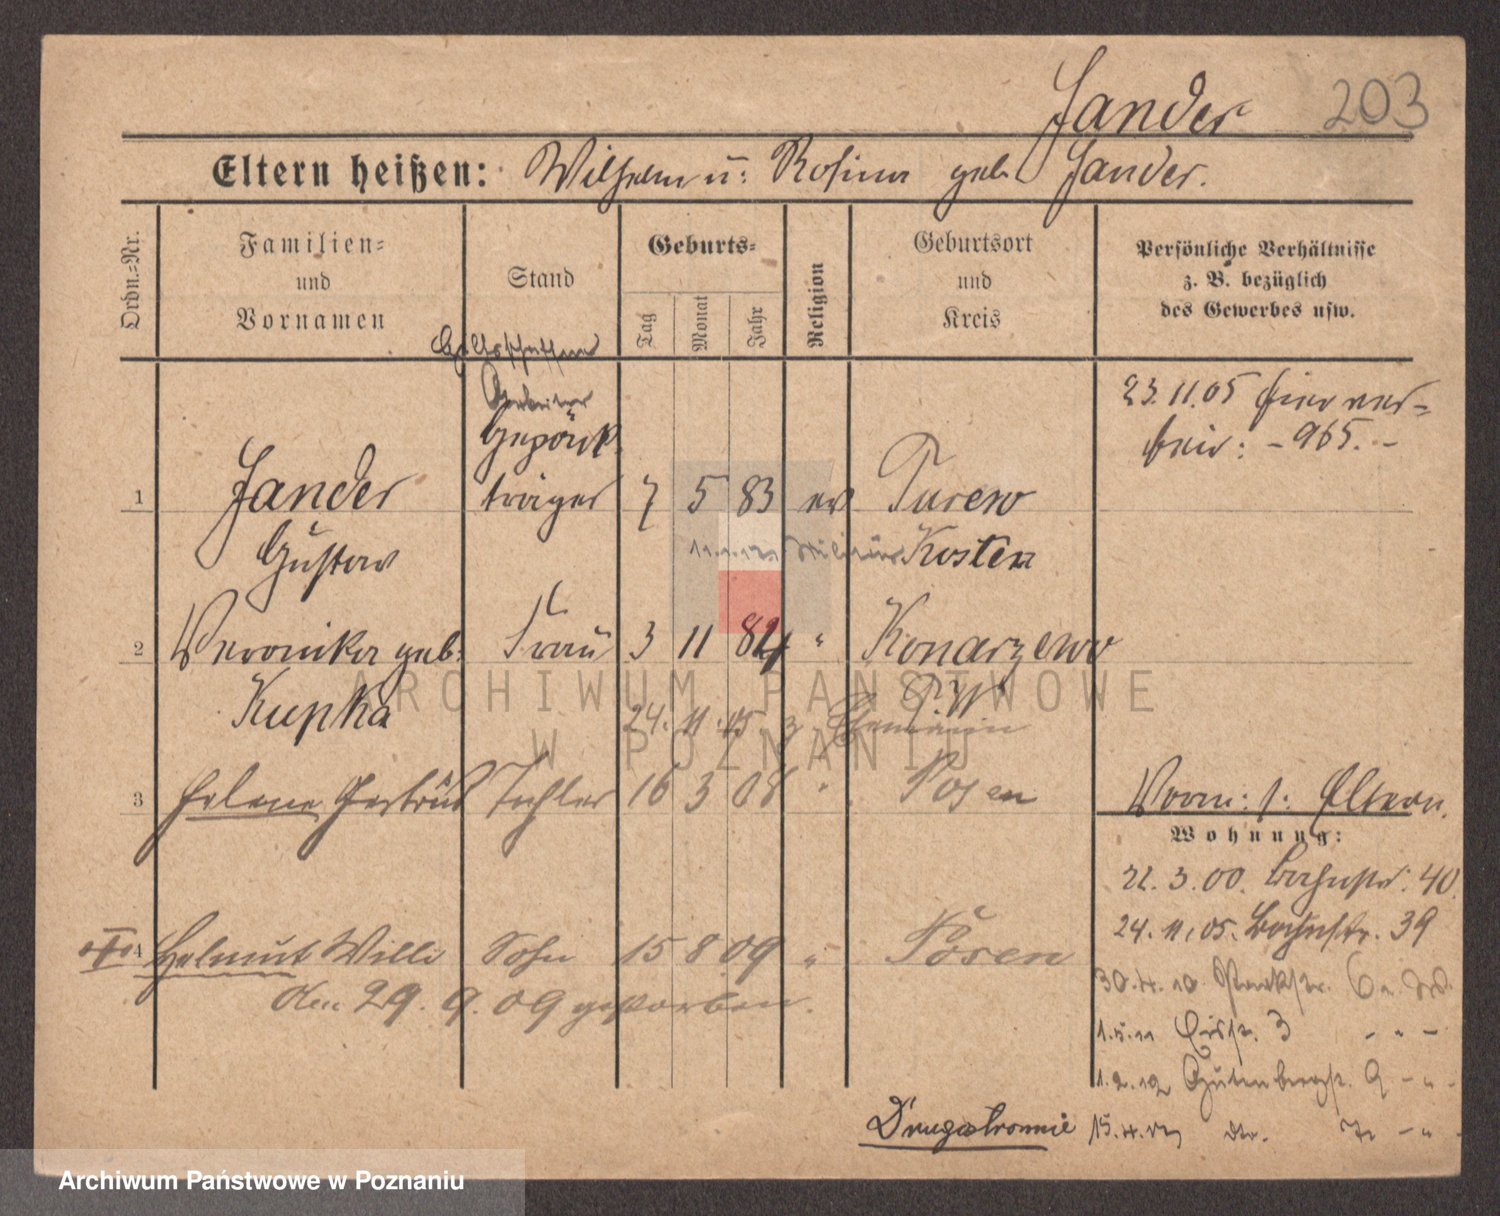 Jander 203
Eltern heißen: Wilhelm u: Rosina geb Jander.
Ordn.=Nr.
Familien=
und
Vornamen
Stand
Geburts=
Tag
Monat
Jahr
Religion
Geburtsort
und
Kreis
Persönliche Verhältnisse
z. B. bezüglich
des Gewerbes usw.
Arbeiter
Gepäck
23.11.05 hier ver=
heir: - 965. -
1 Jander träger 7 5 83 ev Turew
Gustav Kosten
2 Veronika geb. Frau 3 11 84 " Konarzewo
Kupka P.W
24. 11. 05. z. Ehemann
3 Helene Gertrud Tochter 16 3 08 " Posen
Vorm: s: Eltern.
Wohnung:
22. 3. 00. Bahnstr. 40.
24. 11. 05. Bahnstr. 39
4 Helmut Willi Sohn 15 8 09 " Posen
den 29. 9. 09 gestorben.
30.4.10 Parkstr.
1.5.11 3 - " -
1.2.12 Gutenbergstr. 9 - " -
Druga stronnie 15.4.
ARCHIWUM PAŃSTWOWE
W POZNANIU
Archiwum Państwowe w Poznaniu